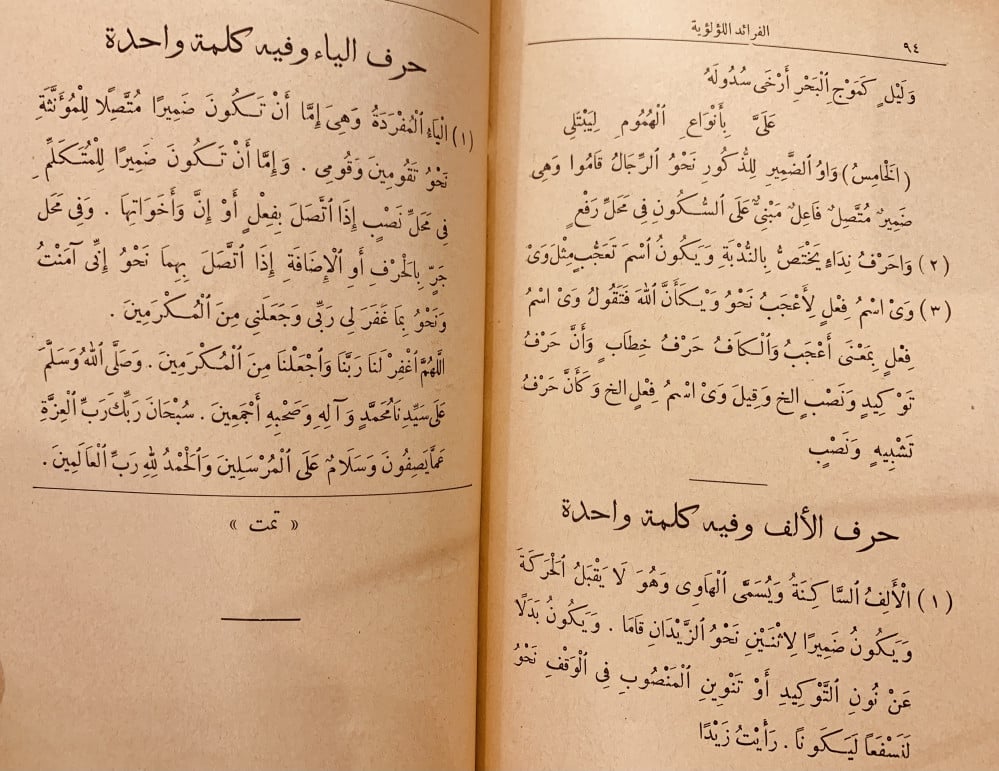 الفرائد اللؤلؤية
٩٤
وَلَيْلٍ كَمَوْجِ ٱلْبَحْرِ أَرْخَى سُدُولَهُ
عَلَيَّ بِأَنْوَاعِ ٱلْهُمُومِ لِيَبْتَلِى
(اَلْخَامِسُ) وَاوُ ٱلضَّمِيرِ لِلذُّكُورِ نَحْوُ ٱلرِّجَالُ قَامُوا وَهِىَ
ضَمِيرٌ مُتَّصِلٌ فَاعِلٌ مَبْنِىٌّ عَلَى ٱلسُّكُونِ فِى مَحَلِّ رَفْعٍ
(٢) وَاحَرْفُ نِدَاءٍ يَخْتَصُّ بِالنُّدْبَةِ وَيَكُونُ ٱسْمَ تَعَجُّبٍ مِثْلَ وَىْ
(٣) وَىْ ٱسْمُ فِعْلٍ لِأَعْجَبُ نَحْوُ وَيْكَأَنَّ ٱللهَ فَتَقُولُ وَىْ ٱسْمُ
فِعْلٍ بِمَعْنَى أَعْجَبُ وَٱلْكَافُ حَرْفُ خِطَابٍ وَأَنَّ حَرْفُ
تَوْكِيدٍ وَنَصْبٍ الخ وَقِيلَ وَىْ ٱسْمُ فِعْلٍ الخ وَكَأَنَّ حَرْفُ
تَشْبِيهٍ وَنَصْبٍ
حرف الألف وفيه كلمة واحدة
(١) اَلْأَلِفُ ٱلسَّاكِنَةُ وَيُسَمَّى ٱلْهَاوِى وَهُوَ لَا يَقْبَلُ ٱلْحَرَكَةَ
وَيَكُونُ ضَمِيرًا لِاثْنَيْنِ نَحْوُ ٱلزَّيْدَانِ قَامَا . وَيَكُونُ بَدَلًا
عَنْ نُونِ ٱلتَّوْكِيدِ أَوْ تَنْوِينِ ٱلْمَنْصُوبِ فِى ٱلْوَقْفِ نَحْوُ
لَنَسْفَعَاً لَيَكُونَا . رَأَيْتُ زَيْدًا
حرف الياء وفيه كلمة واحدة
(١) اَلْيَاءُ ٱلْمُفْرَدَةُ وَهِىَ إِمَّا أَنْ تَكُونَ ضَمِيرًا مُتَّصِلًا لِلْمُؤَنَّثَةِ
نَحْوُ تَقُومِينَ وَقُومِى . وَإِمَّا أَنْ تَكُونَ ضَمِيرًا لِلْمُتَكَلِّمِ
فِى مَحَلِّ نَصْبٍ إِذَا ٱتَّصَلَ بِفِعْلٍ أَوْ إِنَّ وَأَخَوَاتِهَا . وَفِى مَحَلِّ
جَرٍّ بِالْحَرْفِ أَوِ ٱلْإِضَافَةِ إِذَا ٱتَّصَلَ بِهِمَا نَحْوُ إِنِّى آمَنْتُ
وَنَحْوُ بِمَا غَفَرَ لِى رَبِّى وَجَعَلَنِى مِنَ ٱلْمُكْرَمِينَ .
اَللَّهُمَّ ٱغْفِرْ لَنَا رَبَّنَا وَٱجْعَلْنَا مِنَ ٱلْمُكْرَمِينَ . وَصَلَّى ٱللهُ وَسَلَّمَ
عَلَى سَيِّدِنَا مُحَمَّدٍ وَآلِهِ وَصَحْبِهِ أَجْمَعِينَ . سُبْحَانَ رَبِّكَ رَبِّ ٱلْعِزَّةِ
عَمَّا يَصِفُونَ وَسَلَامٌ عَلَى ٱلْمُرْسَلِينَ وَٱلْحَمْدُ لِلّٰهِ رَبِّ ٱلْعَالَمِينَ .
« تمت »